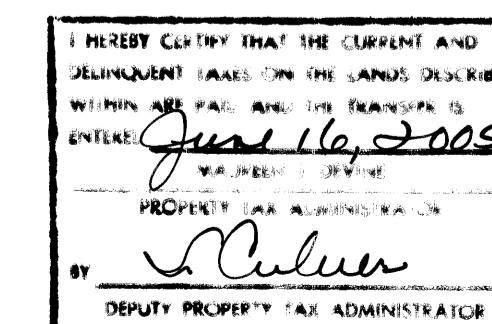 I HEREBY CERTIFY THAT THE CURRENT AND
DELINQUENT TAXES ON THE LANDS DESCRIB
WITHIN ARE PAID AND THE TRANSFER IS
ENTERED June 16, 2005
MAUREEN J. DEVINE
PROPERTY TAX ADMINISTRATOR
BY J. Culver
DEPUTY PROPERTY TAX ADMINISTRATOR